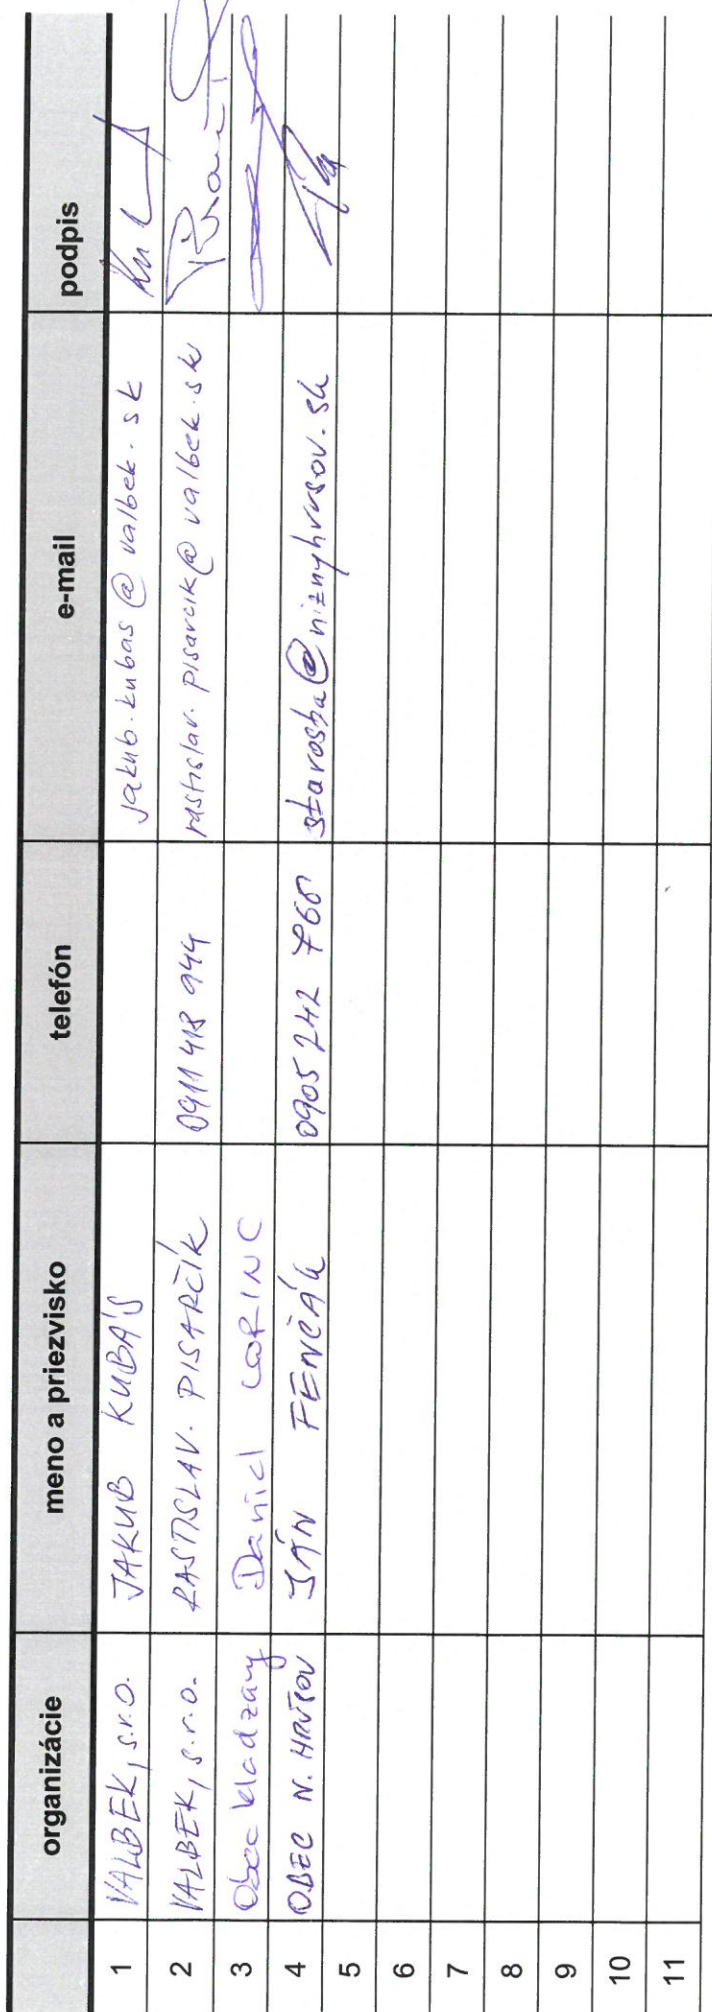 organizácie meno a priezvisko telefón e-mail podpis
1 VALBEK, s.r.o. JAKUB KUBÁŠ jakub.kubas@valbek.sk
2 VALBEK, s.r.o. RASTISLAV. PISARČÍK 0911 418 944 rastislav.pisarcik@valbek.sk
3 Obec Kladzany Daniel LORINC
4 OBEC N. HRUŠOV JÁN FENČÁK 0905 242 766 starosta@niznyhrusov.sk
5
6
7
8
9
10
11